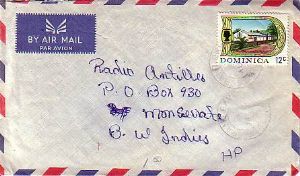 BY AIR MAIL
PAR AVION
DOMINICA 12c
Radio Antilles
P. O Box 930
Monserate
B. W Indies
AP